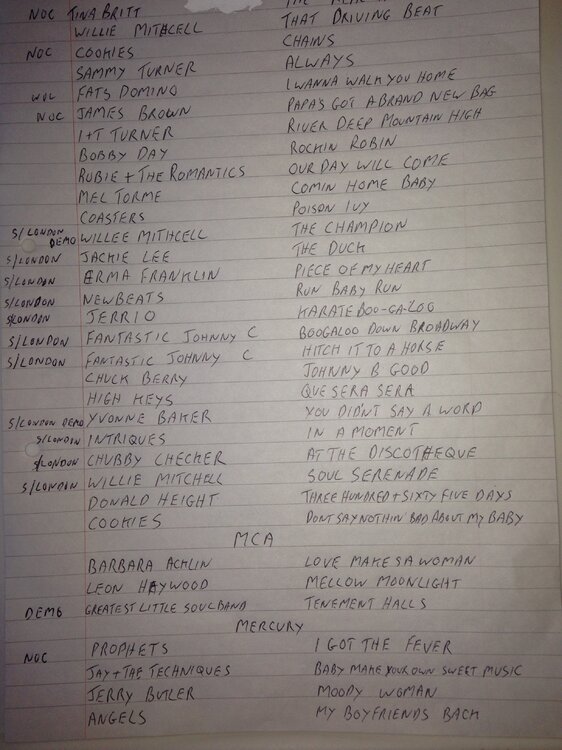 NOC TINA BRITT THE REAL
WILLIE MITHCELL THAT DRIVING BEAT
NOC COOKIES CHAINS
SAMMY TURNER ALWAYS
FATS DOMINO I WANNA WALK YOU HOME
NOC JAMES BROWN PAPAS GOT A BRAND NEW BAG
I+T TURNER RIVER DEEP MOUNTAIN HIGH
BOBBY DAY ROCKIN ROBIN
RUBIE + THE ROMANTICS OUR DAY WILL COME
MEL TORME COMIN HOME BABY
COASTERS POISON IVY
S/LONDON DEMO WILLEE MITHCELL THE CHAMPION
S/LONDON JACKIE LEE THE DUCK
S/LONDON ERMA FRANKLIN PIECE OF MY HEART
S/LONDON NEWBEATS RUN BABY RUN
S/LONDON JERRIO KARATE BOO-GA-LOO
S/LONDON FANTASTIC JOHNNY C BOOGALOO DOWN BROADWAY
S/LONDON FANTASTIC JOHNNY C HITCH IT TO A HORSE
CHUCK BERRY JOHNNY B GOOD
HIGH KEYS QUE SERA SERA
S/LONDON DEMO YVONNE BAKER YOU DIDN'T SAY A WORD
S/LONDON INTRIQUES IN A MOMENT
S/LONDON CHUBBY CHECKER AT THE DISCOTHEQUE
S/LONDON WILLIE MITCHELL SOUL SERENADE
DONALD HEIGHT THREE HUNDRED + SIXTY FIVE DAYS
COOKIES DONT SAY NOTHIN' BAD ABOUT MY BABY
MCA
BARBARA ACHLIN LOVE MAKES A WOMAN
LEON HAYWOOD MELLOW MOONLIGHT
DEMO GREATEST LITTLE SOUL BAND TENEMENT HALLS
MERCURY
NOC PROPHETS I GOT THE FEVER
JAY + THE TECHNIQUES BABY MAKE YOUR OWN SWEET MUSIC
JERRY BUTLER MOODY WOMAN
ANGELS MY BOYFRIENDS BACK